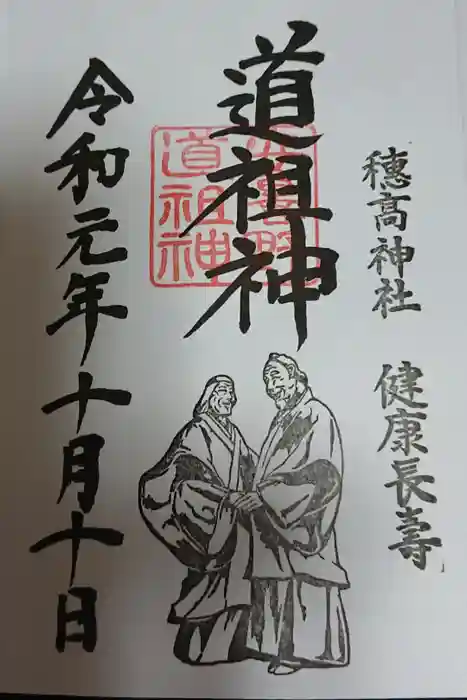 穂高神社 健康長壽
道祖神
道祖神
令和元年十月十日